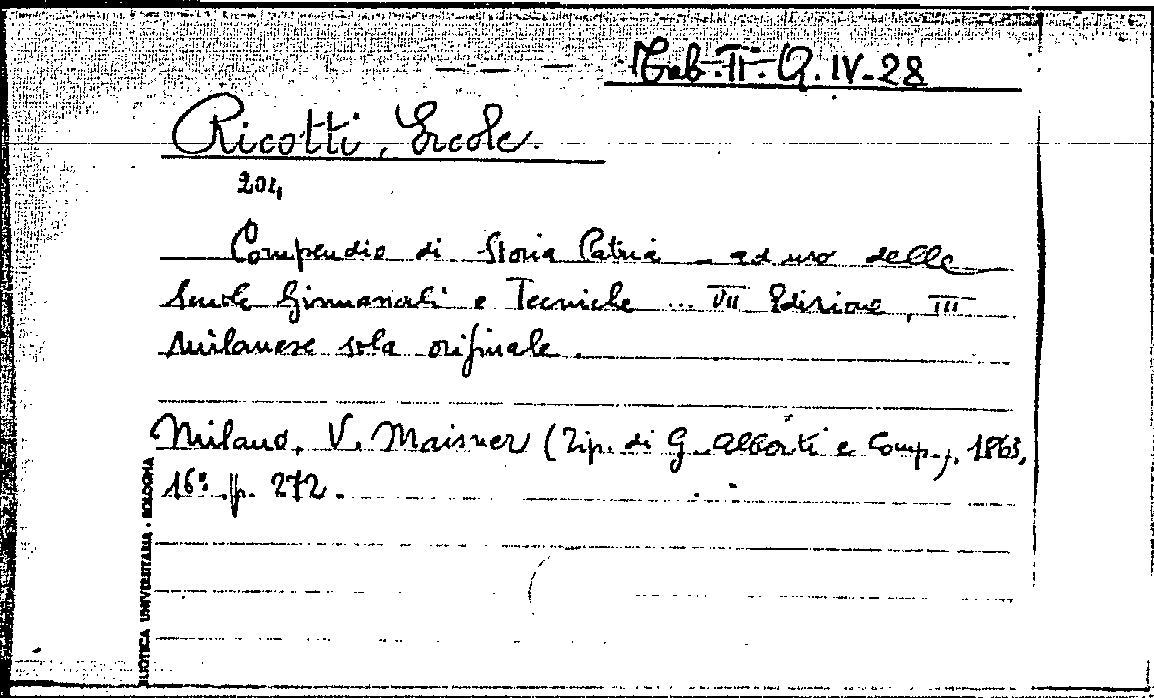 Tab. II. Q. IV-28
Ricotti, Ercole.
204
Compendio di Storia Patria ad uso delle
Scuole Ginnasiali e Tecniche ... VII Edizione, III
Milanese sola originale.
Milano, V. Maisner (Tip. di G. Alberti e Comp.), 1863,
16° p. 272.
BLIOTECA UNIVERSITARIA - BOLOGNA